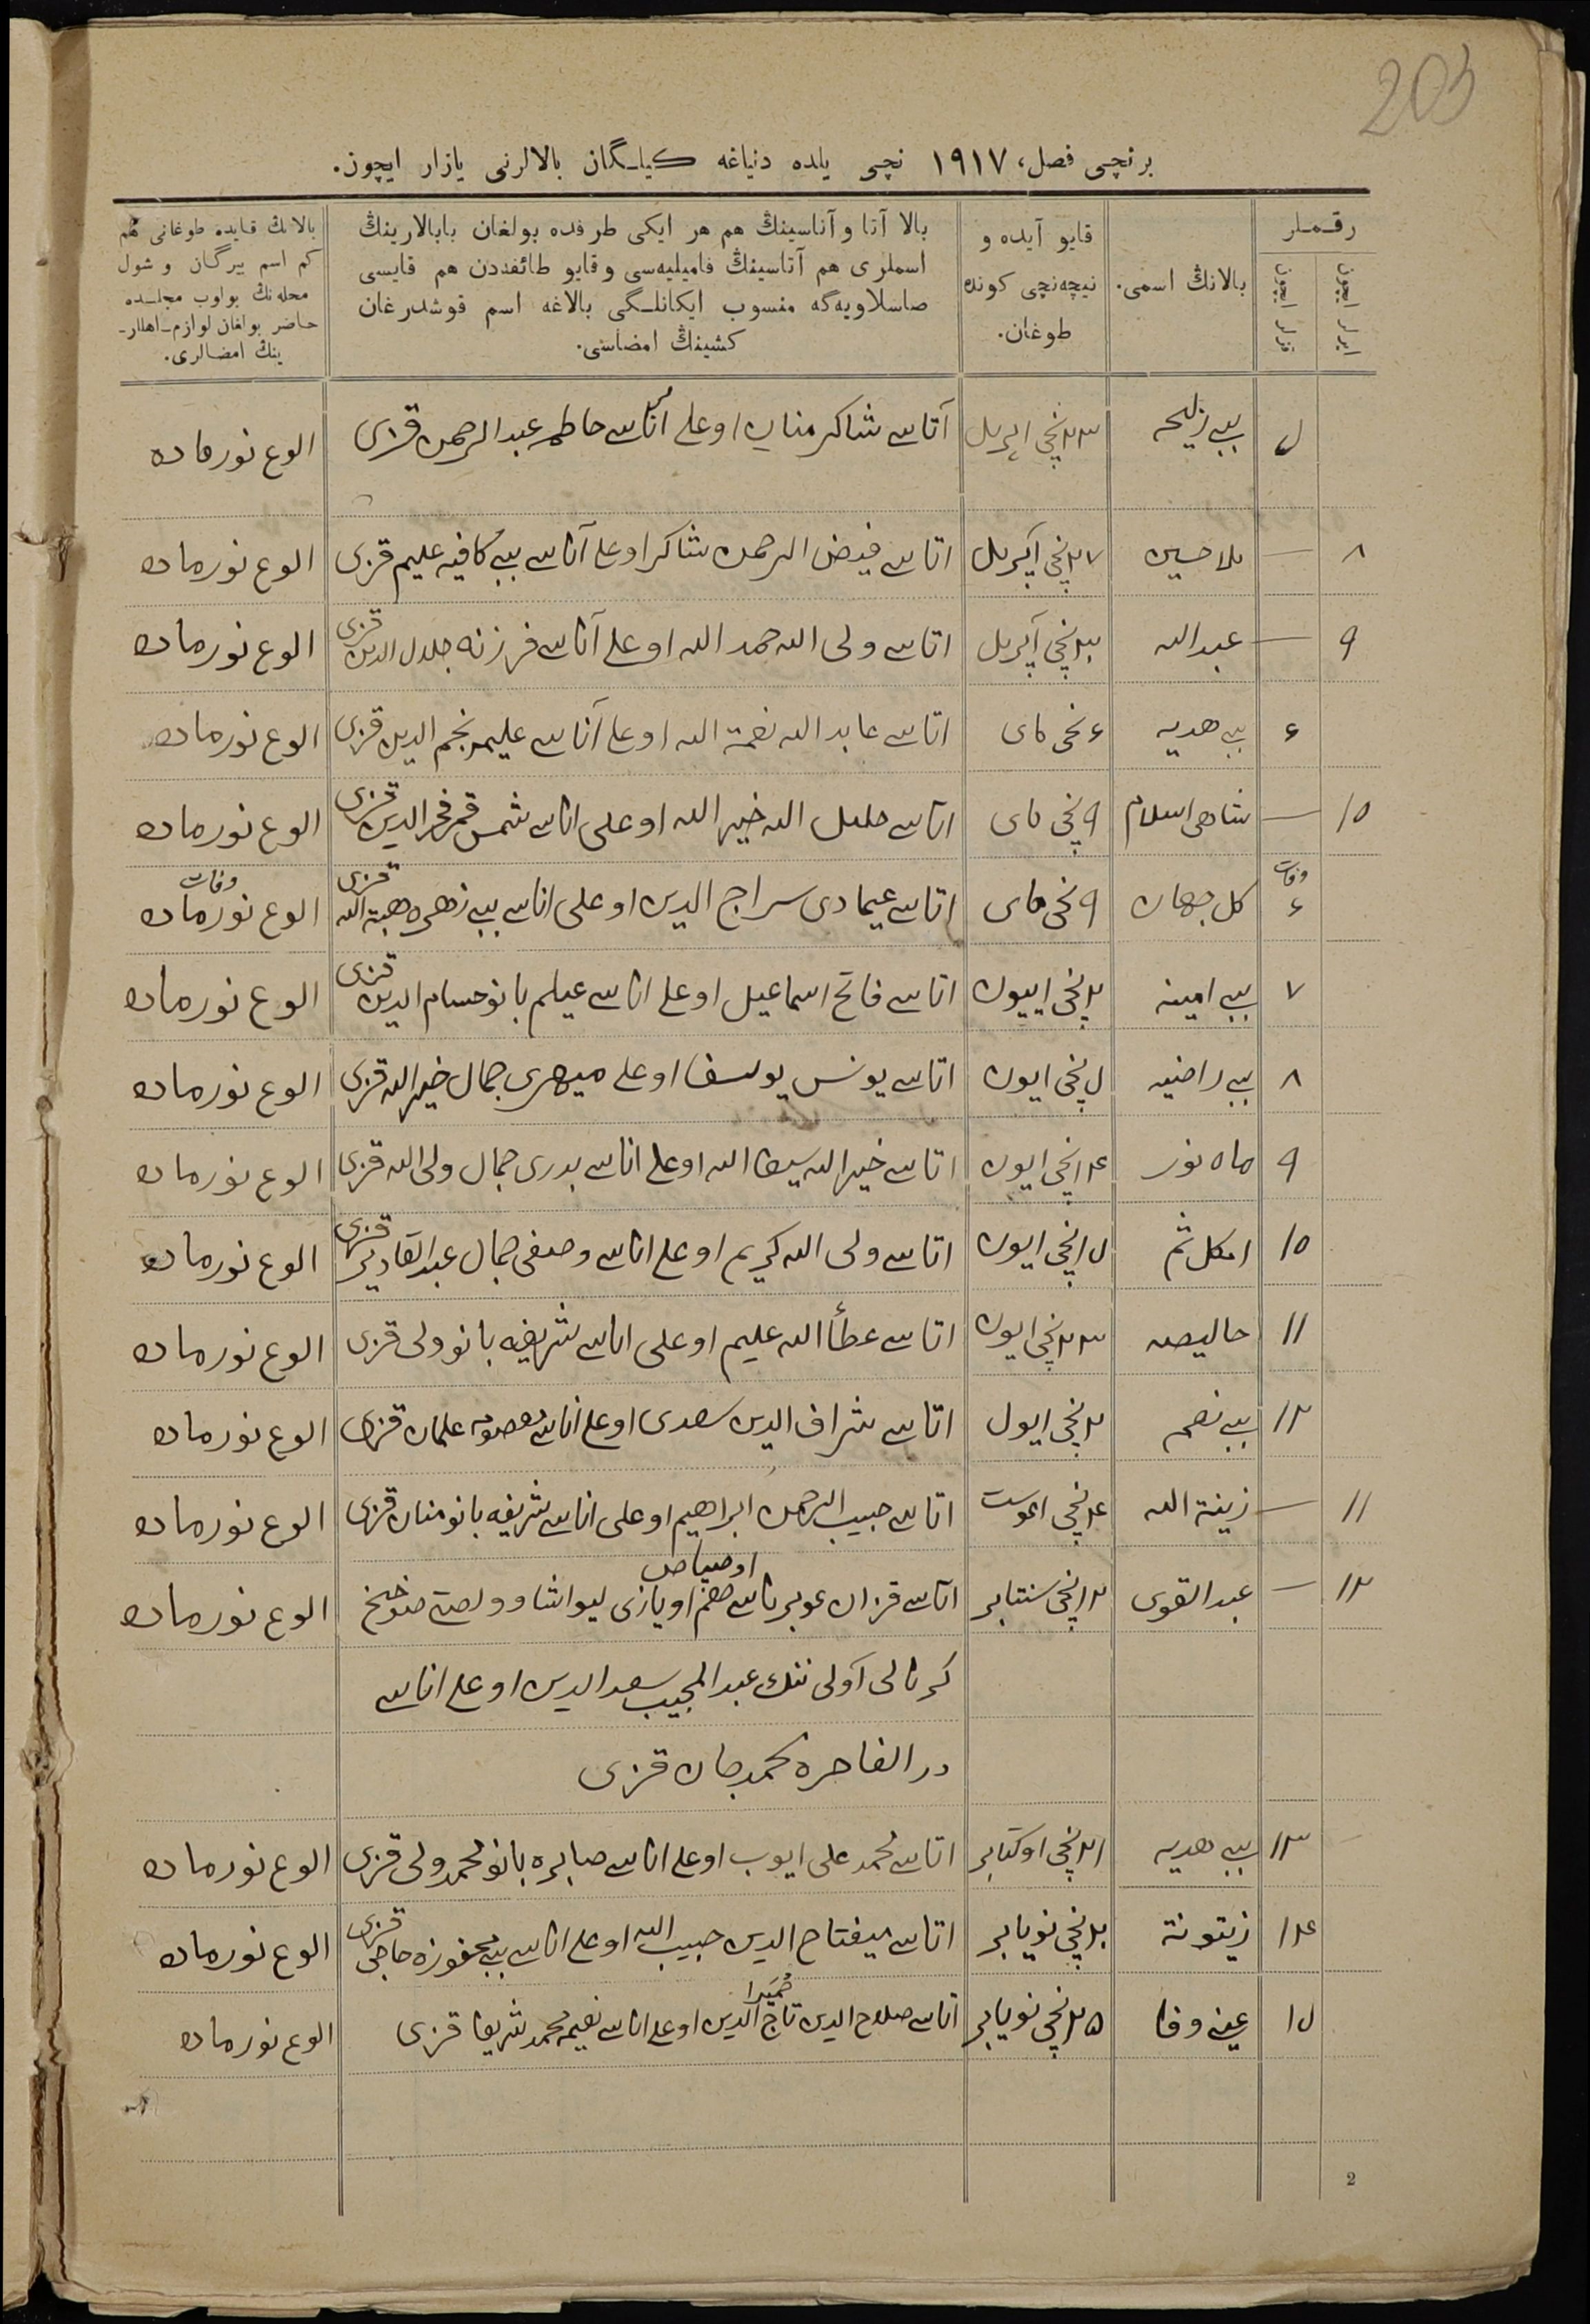 203
برنچی فصل، ١٩١٧ نچی یلده دنیاغه کیلگان بالالرنی یازار ایچون.
رقملر
ایرلر ایچون
قزلر ایچون
بالانڭ اسمی.
قایو آیده و
نیچه‌نچی کونده
طوغان.
بالا آتا و آناسینڭ هم هر ایکی طرفده بولغان بابالارینڭ
اسملری هم آتاسینڭ فامیلیه‌سی و قایو طائفه‌دن هم قایسی
صاسلاویه‌گه منسوب ایکانلگی بالاغه اسم قوشدرغان
کشینڭ امضاسی.
بالانڭ قایده طوغانی هم
کم اسم بیرگان و شول
محله‌نڭ بولوب مجلسده
حاضر بولغان لوازم اهللر-
ینڭ امضالری.
٥ بیبی زلیحه ٢٣نچی اپریل آتاسی شاکر منان اوغلی آناسی عبدالرحمن قزی الوغ نورما ده
٨ — ملا حسین ٢٧نچی آپریل اتاسی فیض الرحمن شاکر اوغلی آناسی بیبی کافیه علیم قزی الوغ نورما ده
٩ — عبدالله آپریل اتاسی ولی الله حمد الله اوغلی آناسی فرزنه جلال الدین قزی الوغ نورما ده
٦ بیبی هدیه ٦نچی مای اتاسی عابد الله نعمة الله اوغلی آناسی علیمه نجم الدین قزی الوغ نورما ده
١٠ — شاهی اسلام ٩نچی مای اتاسی خلیل الله خیر الله اوغلی اناسی شمس قمر فخر الدین قزی الوغ نورما ده
وفات ٦ گل جهان ٩نچی مای اتاسی عیمادی سراج الدین اوغلی اناسی بیبی زهره هبة الله قزی الوغ نورما ده وفات
٧ بیبی امینه ٢نچی اییون اتاسی فاتح اسماعیل اوغلی اناسی عیلم بانو حسام الدین قزی الوغ نورما ده
٨ بیبی راضیه ٥نچی ایون اتاسی یونس یوسف اوغلی میهری جمال خیر الله قزی الوغ نورما ده
٩ ماه نور ١٤نچی ایون اتاسی خیر الله سیف الله اوغلی اناسی بدری جمال ولی الله قزی الوغ نورما ده
١٠ امکلثم ١٥نچی ایون اتاسی ولی الله کریم اوغلی اناسی وصفی جمال عبدالقادیر قزی الوغ نورما ده
١١ حالیصه ٢٣نچی ایون اتاسی عطأ الله علیم اوغلی اناسی شریفه بانو ولی قزی الوغ نورما ده
١٢ بیبی نعیمه ٢نچی ایول اتاسی شراف الدین سعدی اوغلی اناسی معصومه علمان قزی الوغ نورما ده
١١ — زینة الله ٤نچی اغوست اتاسی حبیب الرحمن ابراهیم اوغلی اناسی شریفه بانو منان قزی الوغ نورما ده
١٢ — عبد القوی ١٢نچی سنتابر اتاسی قزان اویازی الوغ نورما ده
اولی ننڭ عبد المجیب سعد الدین اوغلی اناسی
در الفاخره محمدجان قزی
١٣ بیبی هدیه ٢١نچی اوکتابر اتاسی محمد علی ایوب اوغلی اناسی صابره بانو محمد ولی قزی الوغ نورما ده
١٤ زیتونة نویابر اتاسی میفتاح الدین حبیب الله اوغلی اناسی بیبی محفوزه حاجی قزی الوغ نورما ده
١٥ عینی وفا ٢٥نچی نویابر اتاسی صلاح الدین تاج الدین اوغلی اناسی نعیمه محمد شریف قزی الوغ نورما ده
2